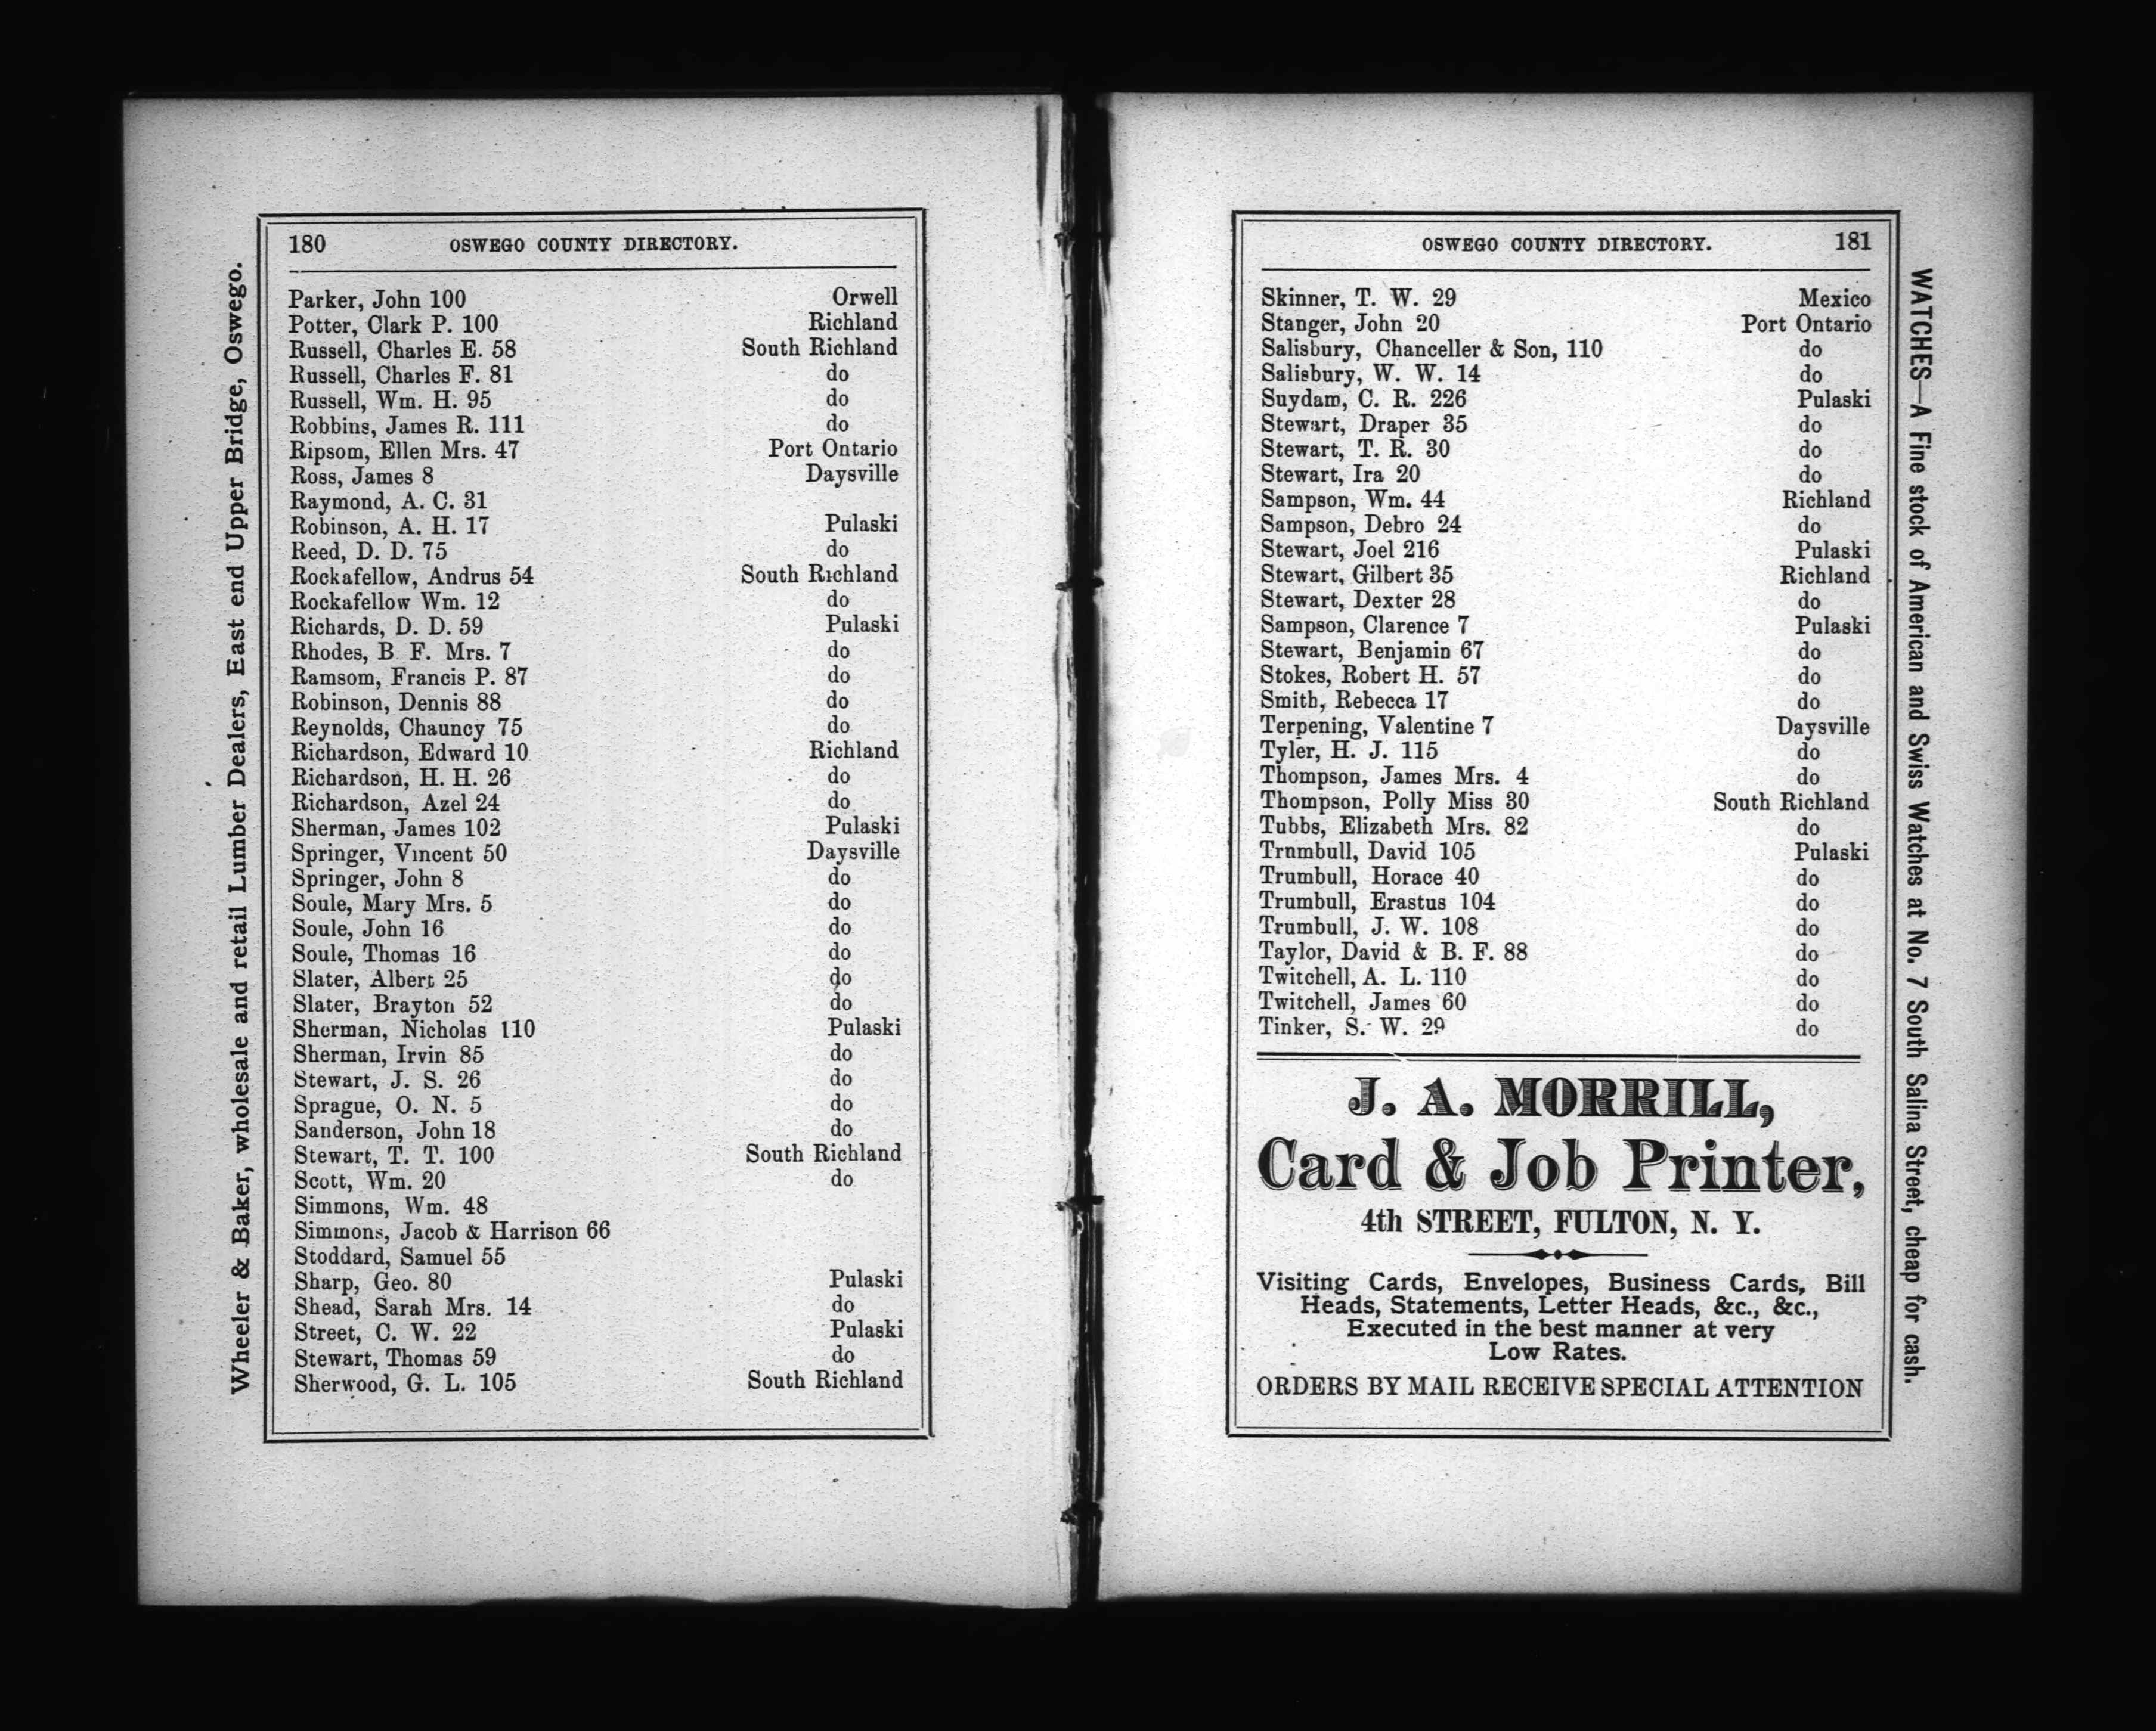 Wheeler & Baker, wholesale and retail Lumber Dealers, East end Upper Bridge, Oswego.
180 OSWEGO COUNTY DIRECTORY.
Parker, John 100 Orwell
Potter, Clark P. 100 Richland
Russell, Charles E. 58 South Richland
Russell, Charles F. 81 do
Russell, Wm. H. 95 do
Robbins, James R. 111 do
Ripsom, Ellen Mrs. 47 Port Ontario
Ross, James 8 Daysville
Raymond, A. C. 31
Robinson, A. H. 17 Pulaski
Reed, D. D. 75 do
Rockafellow, Andrus 54 South Richland
Rockafellow Wm. 12 do
Richards, D. D. 59 Pulaski
Rhodes, B F. Mrs. 7 do
Ramsom, Francis P. 87 do
Robinson, Dennis 88 do
Reynolds, Chauncy 75 do
Richardson, Edward 10 Richland
Richardson, H. H. 26 do
Richardson, Azel 24 do
Sherman, James 102 Pulaski
Springer, Vincent 50 Daysville
Springer, John 8 do
Soule, Mary Mrs. 5 do
Soule, John 16 do
Soule, Thomas 16 do
Slater, Albert 25 do
Slater, Brayton 52 do
Sherman, Nicholas 110 Pulaski
Sherman, Irvin 85 do
Stewart, J. S. 26 do
Sprague, O. N. 5 do
Sanderson, John 18 do
Stewart, T. T. 100 South Richland
Scott, Wm. 20 do
Simmons, Wm. 48
Simmons, Jacob & Harrison 66
Stoddard, Samuel 55
Sharp, Geo. 80 Pulaski
Shead, Sarah Mrs. 14 do
Street, C. W. 22 Pulaski
Stewart, Thomas 59 do
Sherwood, G. L. 105 South Richland
OSWEGO COUNTY DIRECTORY. 181
Skinner, T. W. 29 Mexico
Stanger, John 20 Port Ontario
Salisbury, Chanceller & Son, 110 do
Salisbury, W. W. 14 do
Suydam, C. R. 226 Pulaski
Stewart, Draper 35 do
Stewart, T. R. 30 do
Stewart, Ira 20 do
Sampson, Wm. 44 Richland
Sampson, Debro 24 do
Stewart, Joel 216 Pulaski
Stewart, Gilbert 35 Richland
Stewart, Dexter 28 do
Sampson, Clarence 7 Pulaski
Stewart, Benjamin 67 do
Stokes, Robert H. 57 do
Smith, Rebecca 17 do
Terpening, Valentine 7 Daysville
Tyler, H. J. 115 do
Thompson, James Mrs. 4 do
Thompson, Polly Miss 30 South Richland
Tubbs, Elizabeth Mrs. 82 do
Trnmbull, David 105 Pulaski
Trumbull, Horace 40 do
Trumbull, Erastus 104 do
Trumbull, J. W. 108 do
Taylor, David & B. F. 88 do
Twitchell, A. L. 110 do
Twitchell, James 60 do
Tinker, S. W. 29 do
J. A. MORRILL,
Card & Job Printer,
4th STREET, FULTON, N. Y.
Visiting Cards, Envelopes, Business Cards, Bill
Heads, Statements, Letter Heads, &c., &c.,
Executed in the best manner at very
Low Rates.
ORDERS BY MAIL RECEIVE SPECIAL ATTENTION
WATCHES—A Fine stock of American and Swiss Watches at No. 7 South Salina Street, cheap for cash.